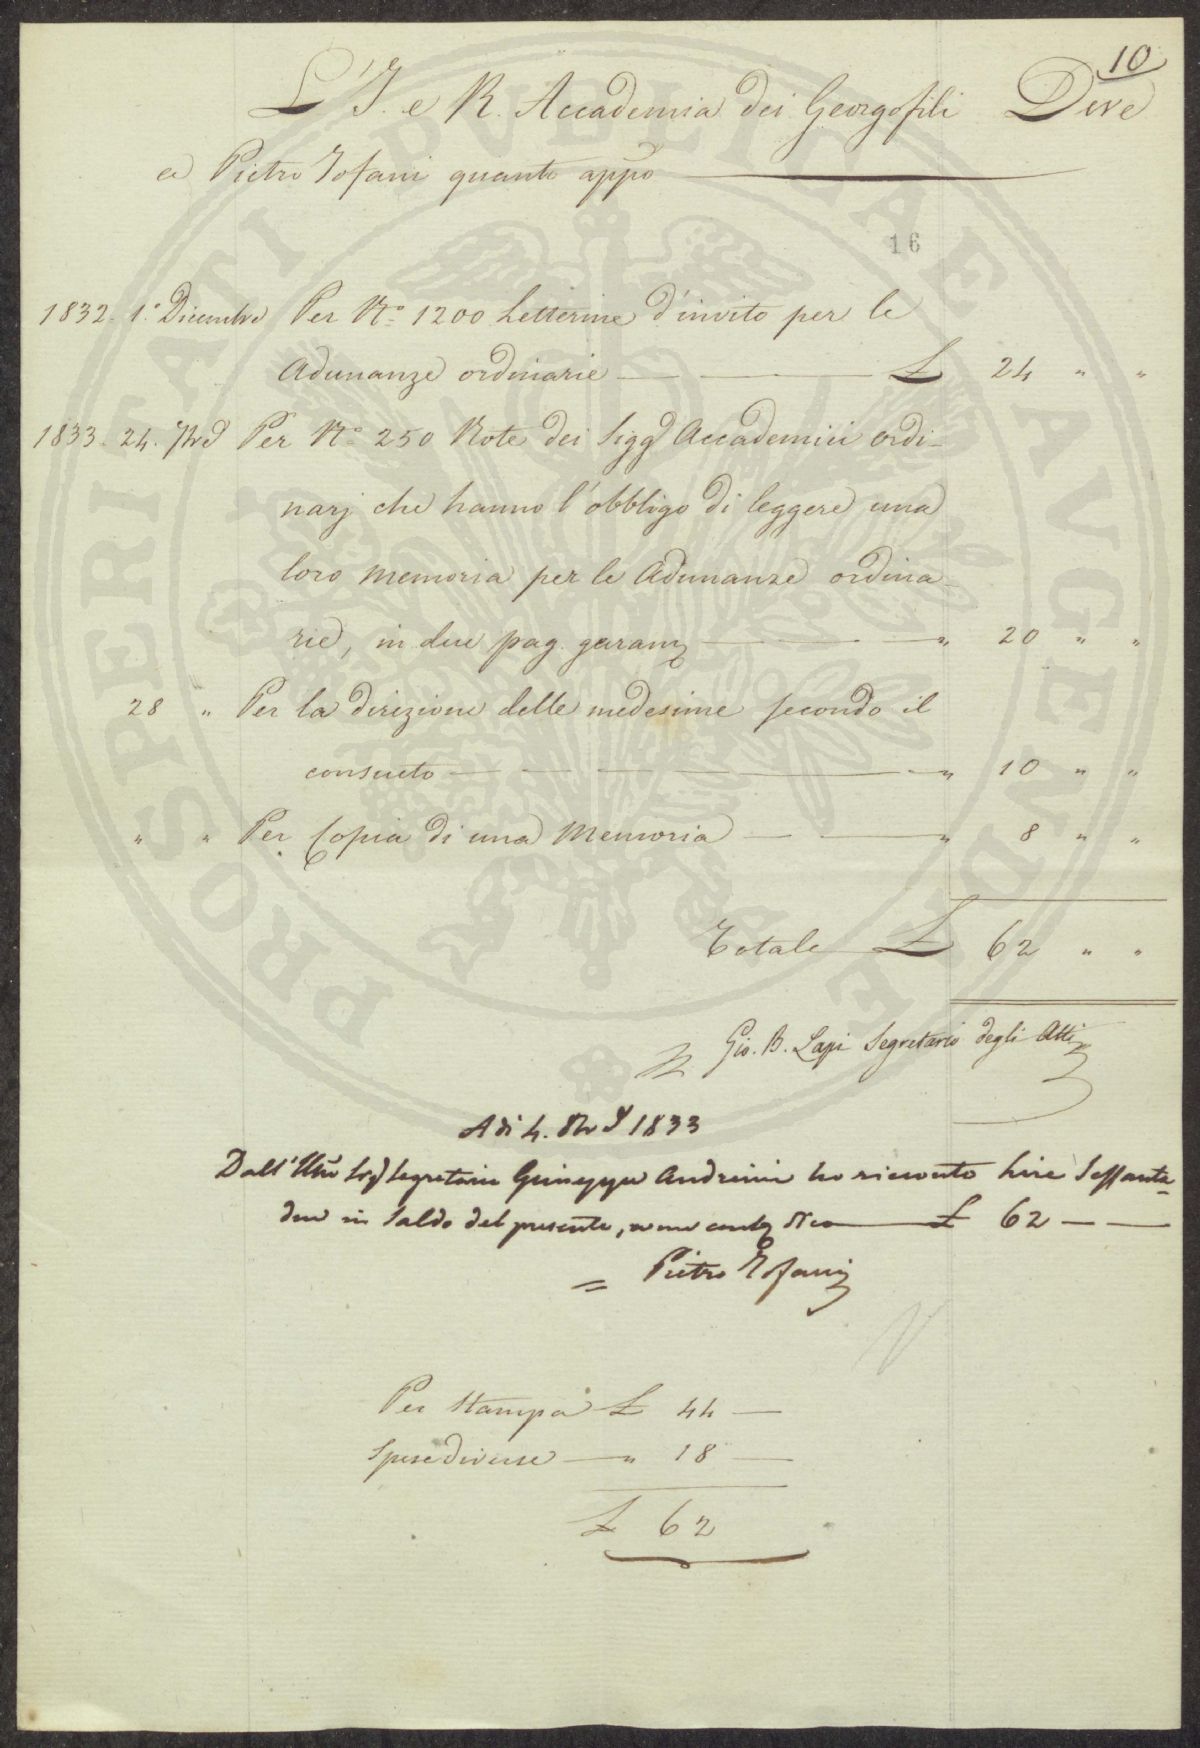 10
L'I. e R. Accademia dei Georgofili Deve
a Pietro Tofani quanto app.o
16
1832. 1.o Dicembre Per N.o 1200 Letterine d'invito per le
Adunanze ordinarie £ 24 " "
1833. 24. 7bre Per N.o 250 Note dei Sigg.ri Accademici ordi-
narj che hanno l'obbligo di leggere una
loro memoria per le Adunanze ordina-
rie, in due pag. " 20 " "
28 " Per la direzione delle medesime secondo il
consueto " 10 " "
" " Per Copia di una Memoria " 8 " "
Totale £ 62 " "
Gio. B. Lapi Segretario degli Atti
A di 4. 8bre 1833
Dall' Ill.mo Sig.r Segretario Giuseppe Andreini ho ricevuto Lire Sessanta-
due in Saldo del presente, £ 62
= Pietro Tofani
Per Stampa £ 44
Spese diverse " 18
£ 62
PROSPERITATI PUBLICAE AUGENDAE